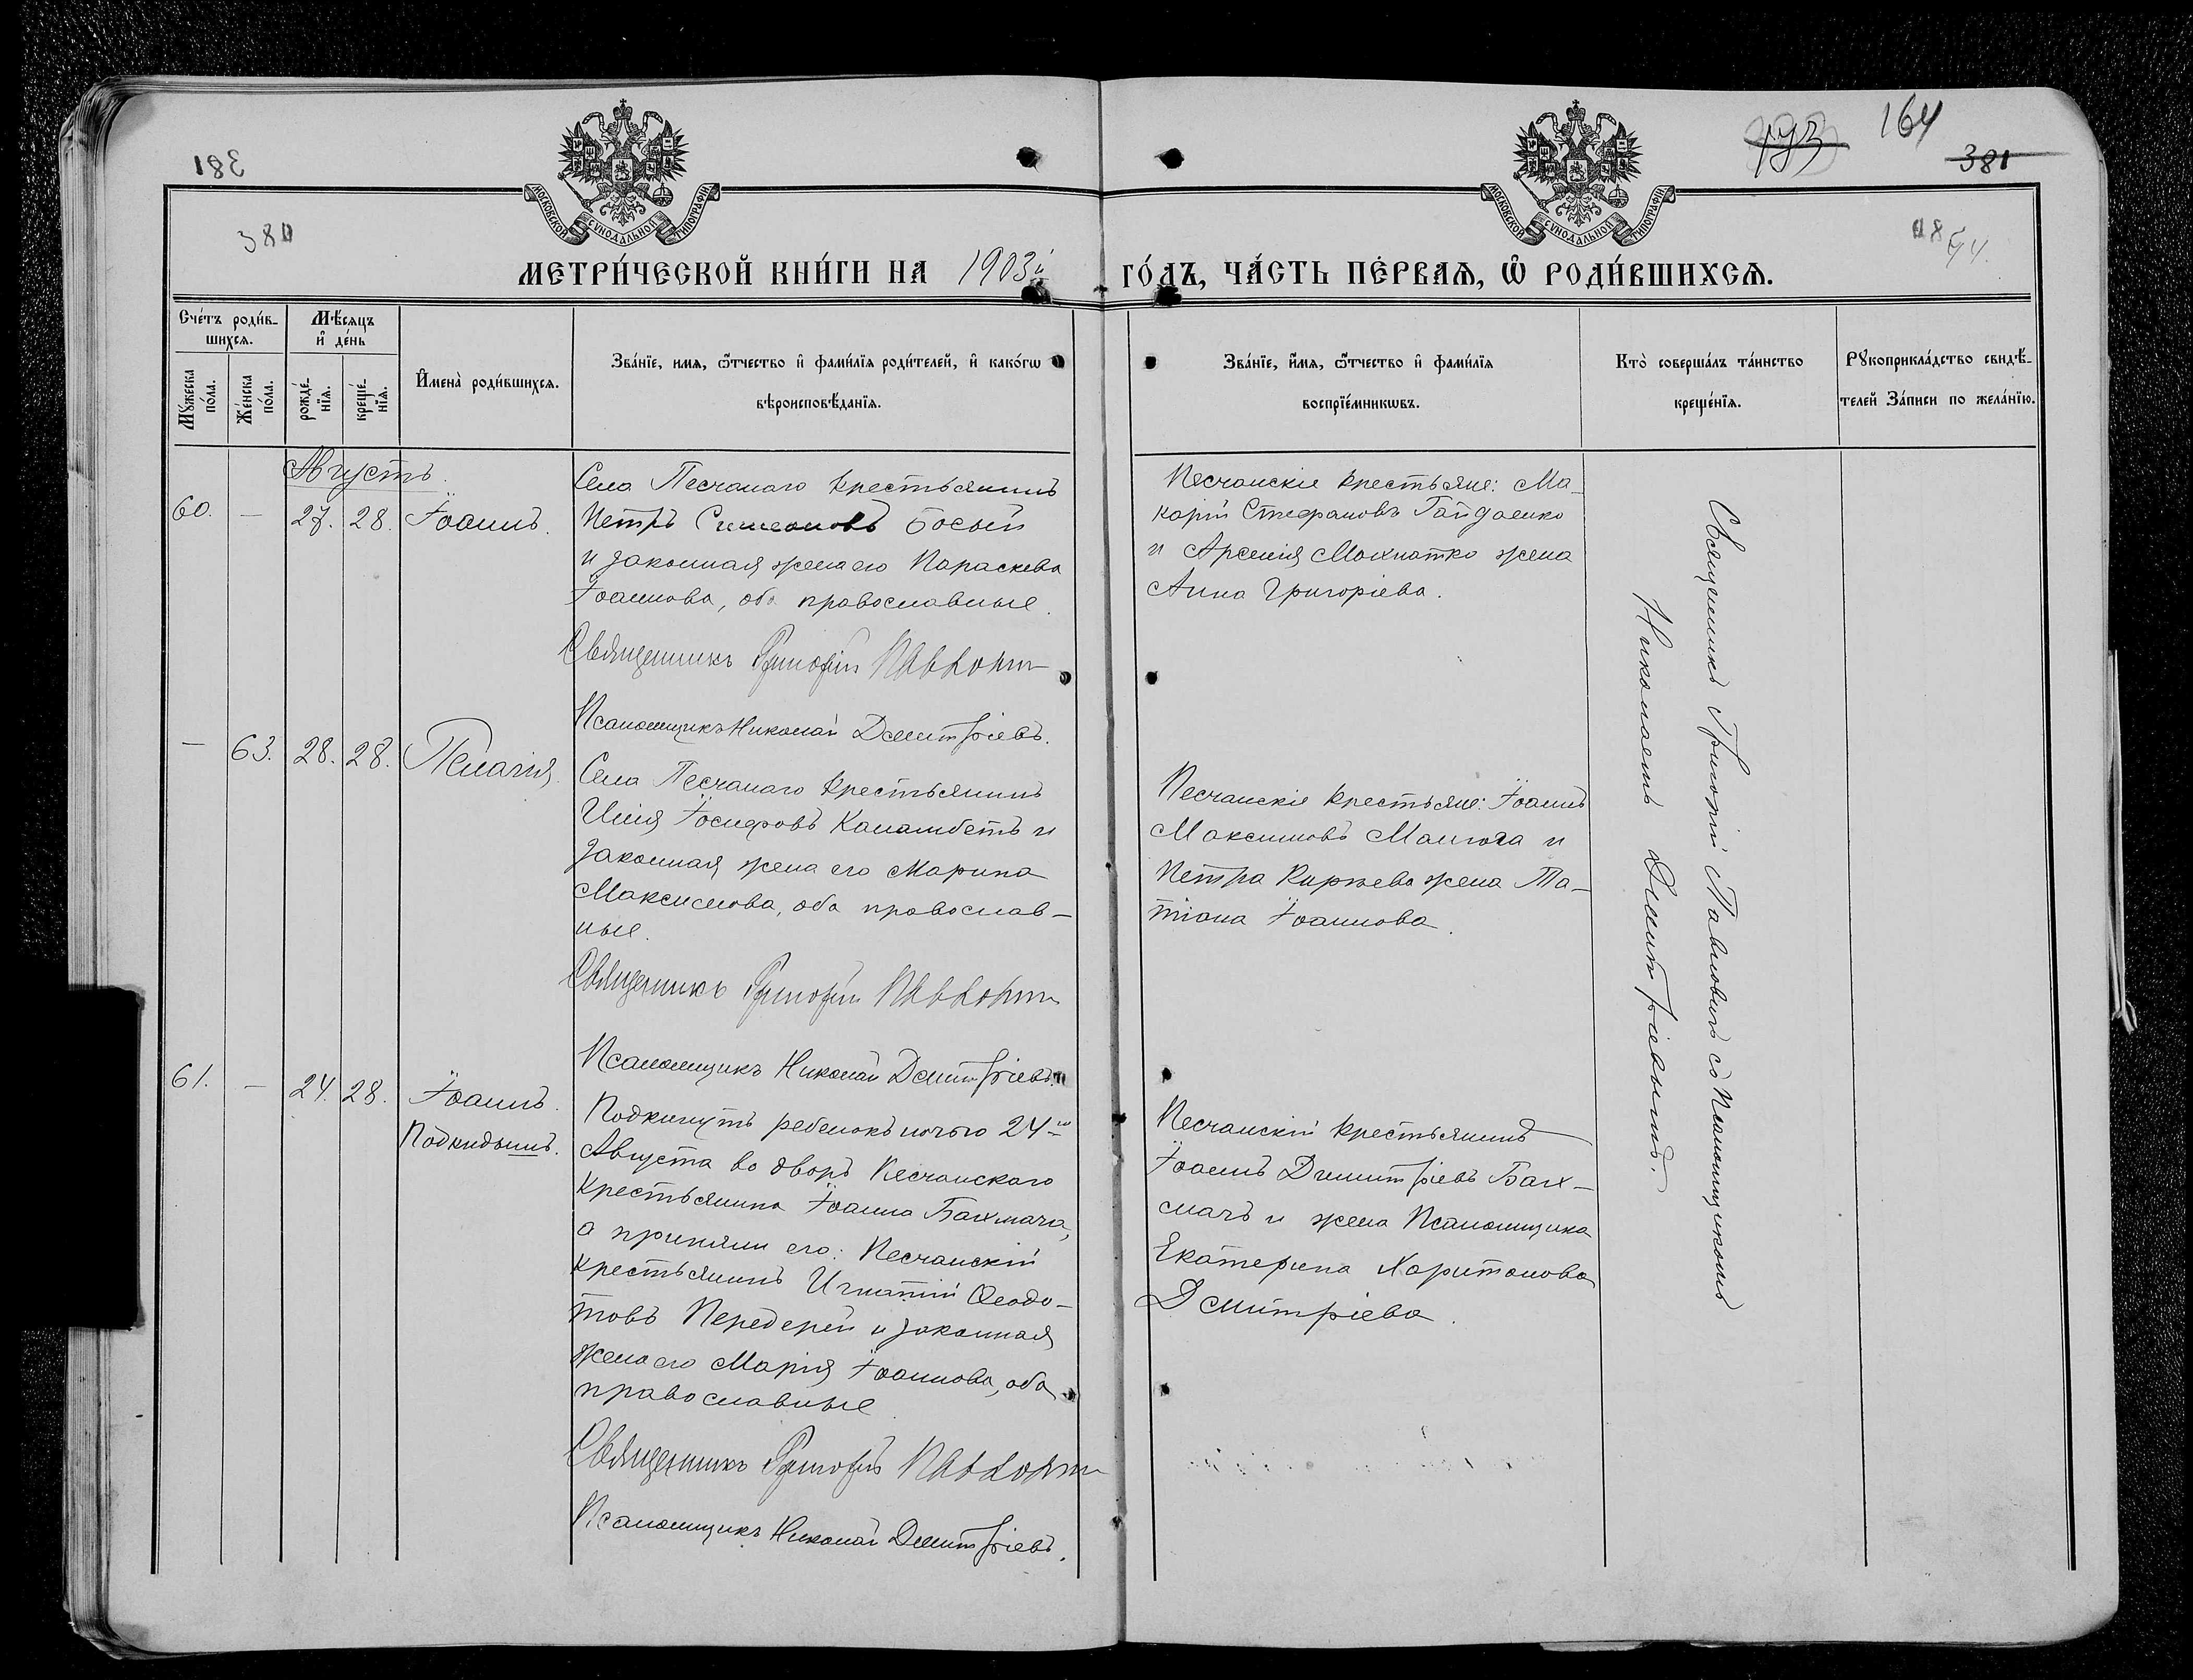 164
381
МОСКОВСКОЙ СѴНОДАЛЬНОЙ ТИПОГРАФІИ
МОСКОВСКОЙ СѴНОДАЛЬНОЙ ТИПОГРАФІИ
МЕТРИ́ЧЕСКОЙ КНИ́ГИ НА 1903й ГО́ДЪ, ЧА́СТЬ ПЕ́РВАѦ, Ѡ҆ РОДИ́ВШИХСѦ.
Сче́тъ роди́в-
шихсѧ.
Мꙋ́жеска
по́ла.
Же́нска
по́ла.
Мѣ́сѧцъ
и҆ де́нь
рожде́-
нїѧ.
креще́-
нїѧ.
И҆мена̀ роди́вшихсѧ.
Зва́нїе, имѧ, ѻ҆́тчество и҆ фами́лїѧ роди́телей, и҆ како́гѡ
вѣроисповѣ́данїѧ.
Зва́нїе, и҆́мѧ, ѻ҆́тчество и҆ фами́лїѧ
воспрїе́мникѡвъ.
Кто̀ соверша́лъ та́инство
креще́нїѧ.
Рꙋкоприкла́дство свидѣ́-
телей За́писи по жела́нїю.
Августъ.
60. — 27. 28. Іоаннъ.
Села Песчанаго крестьянинъ
Петръ Симеоновъ Босый
и законная жена его Параскева
Іоаннова, оба православные.
Священникъ Григорій Павлович
Псаломщикъ Николай Дмитріевъ.
Песчанскіе крестьяне: Ма-
карій Стефановъ Гайдаенко
и Арсенія Мохнатко жена
Анна Григоріева.
— 63. 28. 28. Пелагія.
Села Песчанаго крестьянинъ
Илія Іосифовъ Каламбетъ и
законная жена его Марина
Максимова, оба православ-
ные.
Священникъ Григорій Павлович
Псаломщикъ Николай Дмитріевъ.
Песчанскіе крестьяне: Іоаннъ
Максимовъ Мангоза и
Петра Киржева жена Та-
тіана Іоаннова.
61. — 24. 28. Іоаннъ.
Подкидышъ.
Подкинутъ ребенокъ ночью 24го
Августа во дворъ Песчанскаго
крестьянина Іоанна Бахмача,
а приняли его: Песчанскій
крестьянинъ Игнатій Ѳеодо-
товъ Передерей и законная
жена его Марія Іоаннова, оба
православные
Священникъ Григорій Павлович
Псаломщикъ Николай Дмитріевъ.
Песчанскій крестьянинъ
Іоаннъ Димитріевъ Бах-
мачъ и жена Псаломщика
Екатерина Харитонова
Дмитріева.
Священникъ Григорій Павловичъ съ Псаломщикомъ
Николаемъ Дмитріевымъ.